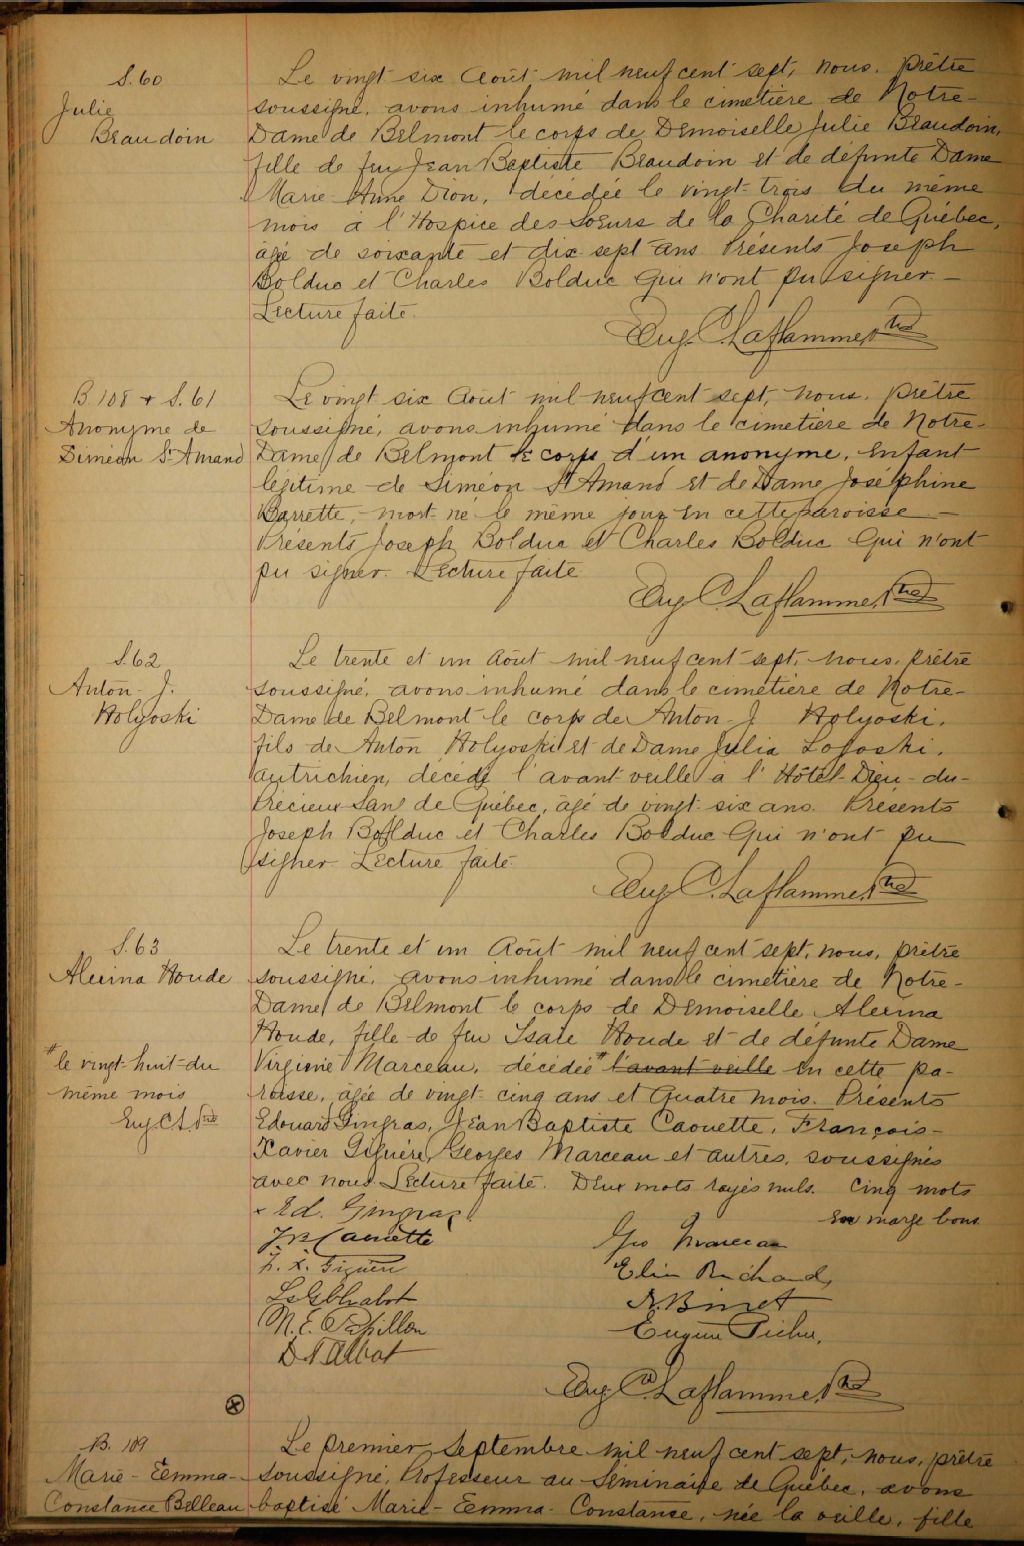 S. 60
Julie
Beaudoin
Le vingt six Août mil neuf cent sept, nous, prêtre
soussigné, avons inhumé dans le cimetière de Notre-
Dame de Belmont le corps de Demoiselle Julie Beaudoin,
fille de feu Jean Baptiste Beaudoin et de défunte Dame
Marie-Anne Dion, décédée le vingt-trois du même
mois à l'Hospice des Soeurs de la Charité de Québec,
âgée de soixante et dix sept ans. Présents Joseph
Bolduc et Charles Bolduc qui n'ont pu signer.-
Lecture faite.
Eug. C. Laflamme, Ptre
B. 108 + S. 61
Anonyme de
Siméon St-Amand
Le vingt six Août mil neuf cent sept, nous, prêtre
soussigné, avons inhumé dans le cimetière de Notre-
Dame de Belmont le corps d'un anonyme, enfant
légitime de Siméon St Amand et de Dame Joséphine
Barrette, mort-né le même jour en cette paroisse -
Présents Joseph Bolduc et Charles Bolduc qui n'ont
pu signer. Lecture faite
Eug. C. Laflamme, Ptre
S. 62
Anton- J.
Holyoski
Le trente et un Août mil neuf cent sept, nous, prêtre
soussigné, avons inhumé dans le cimetière de Notre-
Dame de Belmont le corps de Anton-J Holyoski,
fils de Anton Holyoski et de Dame Julia Lofoski,
autrichien, décédé l'avant veille à l'Hôtel-Dieu-du-
Précieux-Sang de Québec, âgé de vingt-six ans. Présents
Joseph Bolduc et Charles Bolduc qui n'ont pu
signer. Lecture faite
Eug. C. Laflamme, Ptre
S. 63
Alexina Houde
Le trente et un Août mil neuf cent sept, nous, prêtre
soussigné, avons inhumé dans le cimetière de Notre-
Dame de Belmont le corps de Demoiselle Alexina
Houde, fille de feu Isaïe Houde et de défunte Dame
Virginie Marceau, décédée # l'avant veille en cette pa-
roisse, âgée de vingt-cinq ans et quatre mois. Présents
# le vingt-huit du
même mois
Eug. C. L. Ptre
Edouard Gingras, Jean Baptiste Caouette, François-
Xavier Giguère, Georges Marceau et autres, soussignés
avec nous. Lecture faite. Deux mots rayés nuls. Cinq mots
en marge bons
x Ed. Gingras
J B Caouette
Geo Marceau
F. X. Giguère
Richard
Chabot
N. Binet
N. E. Papillon
Eugène Picher,
D Talbot
Eug. C. Laflamme, Ptre
B. 109
Marie-Eemma-
Constance Belleau
Le premier Septembre mil neuf cent sept, nous, prêtre
soussigné, Professeur au Séminaire de Québec, avons
baptisé Marie-Eemma-Constance, née la veille, fille